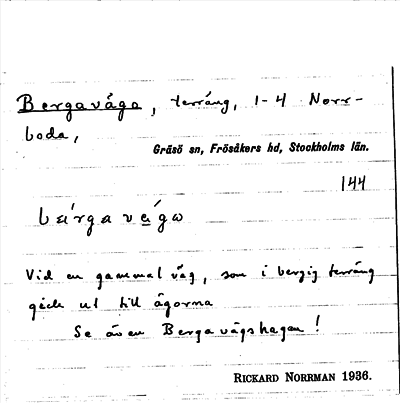 Bergaväga, terräng, 1-4 Norr-
boda,
Gräsö sn, Frösåkers hd, Stockholms län.
144
Vid en gammal väg, som i bergig terräng
gick ut till ägorna
Se även Bergavägshagen!
RICKARD NORRMAN 1936.